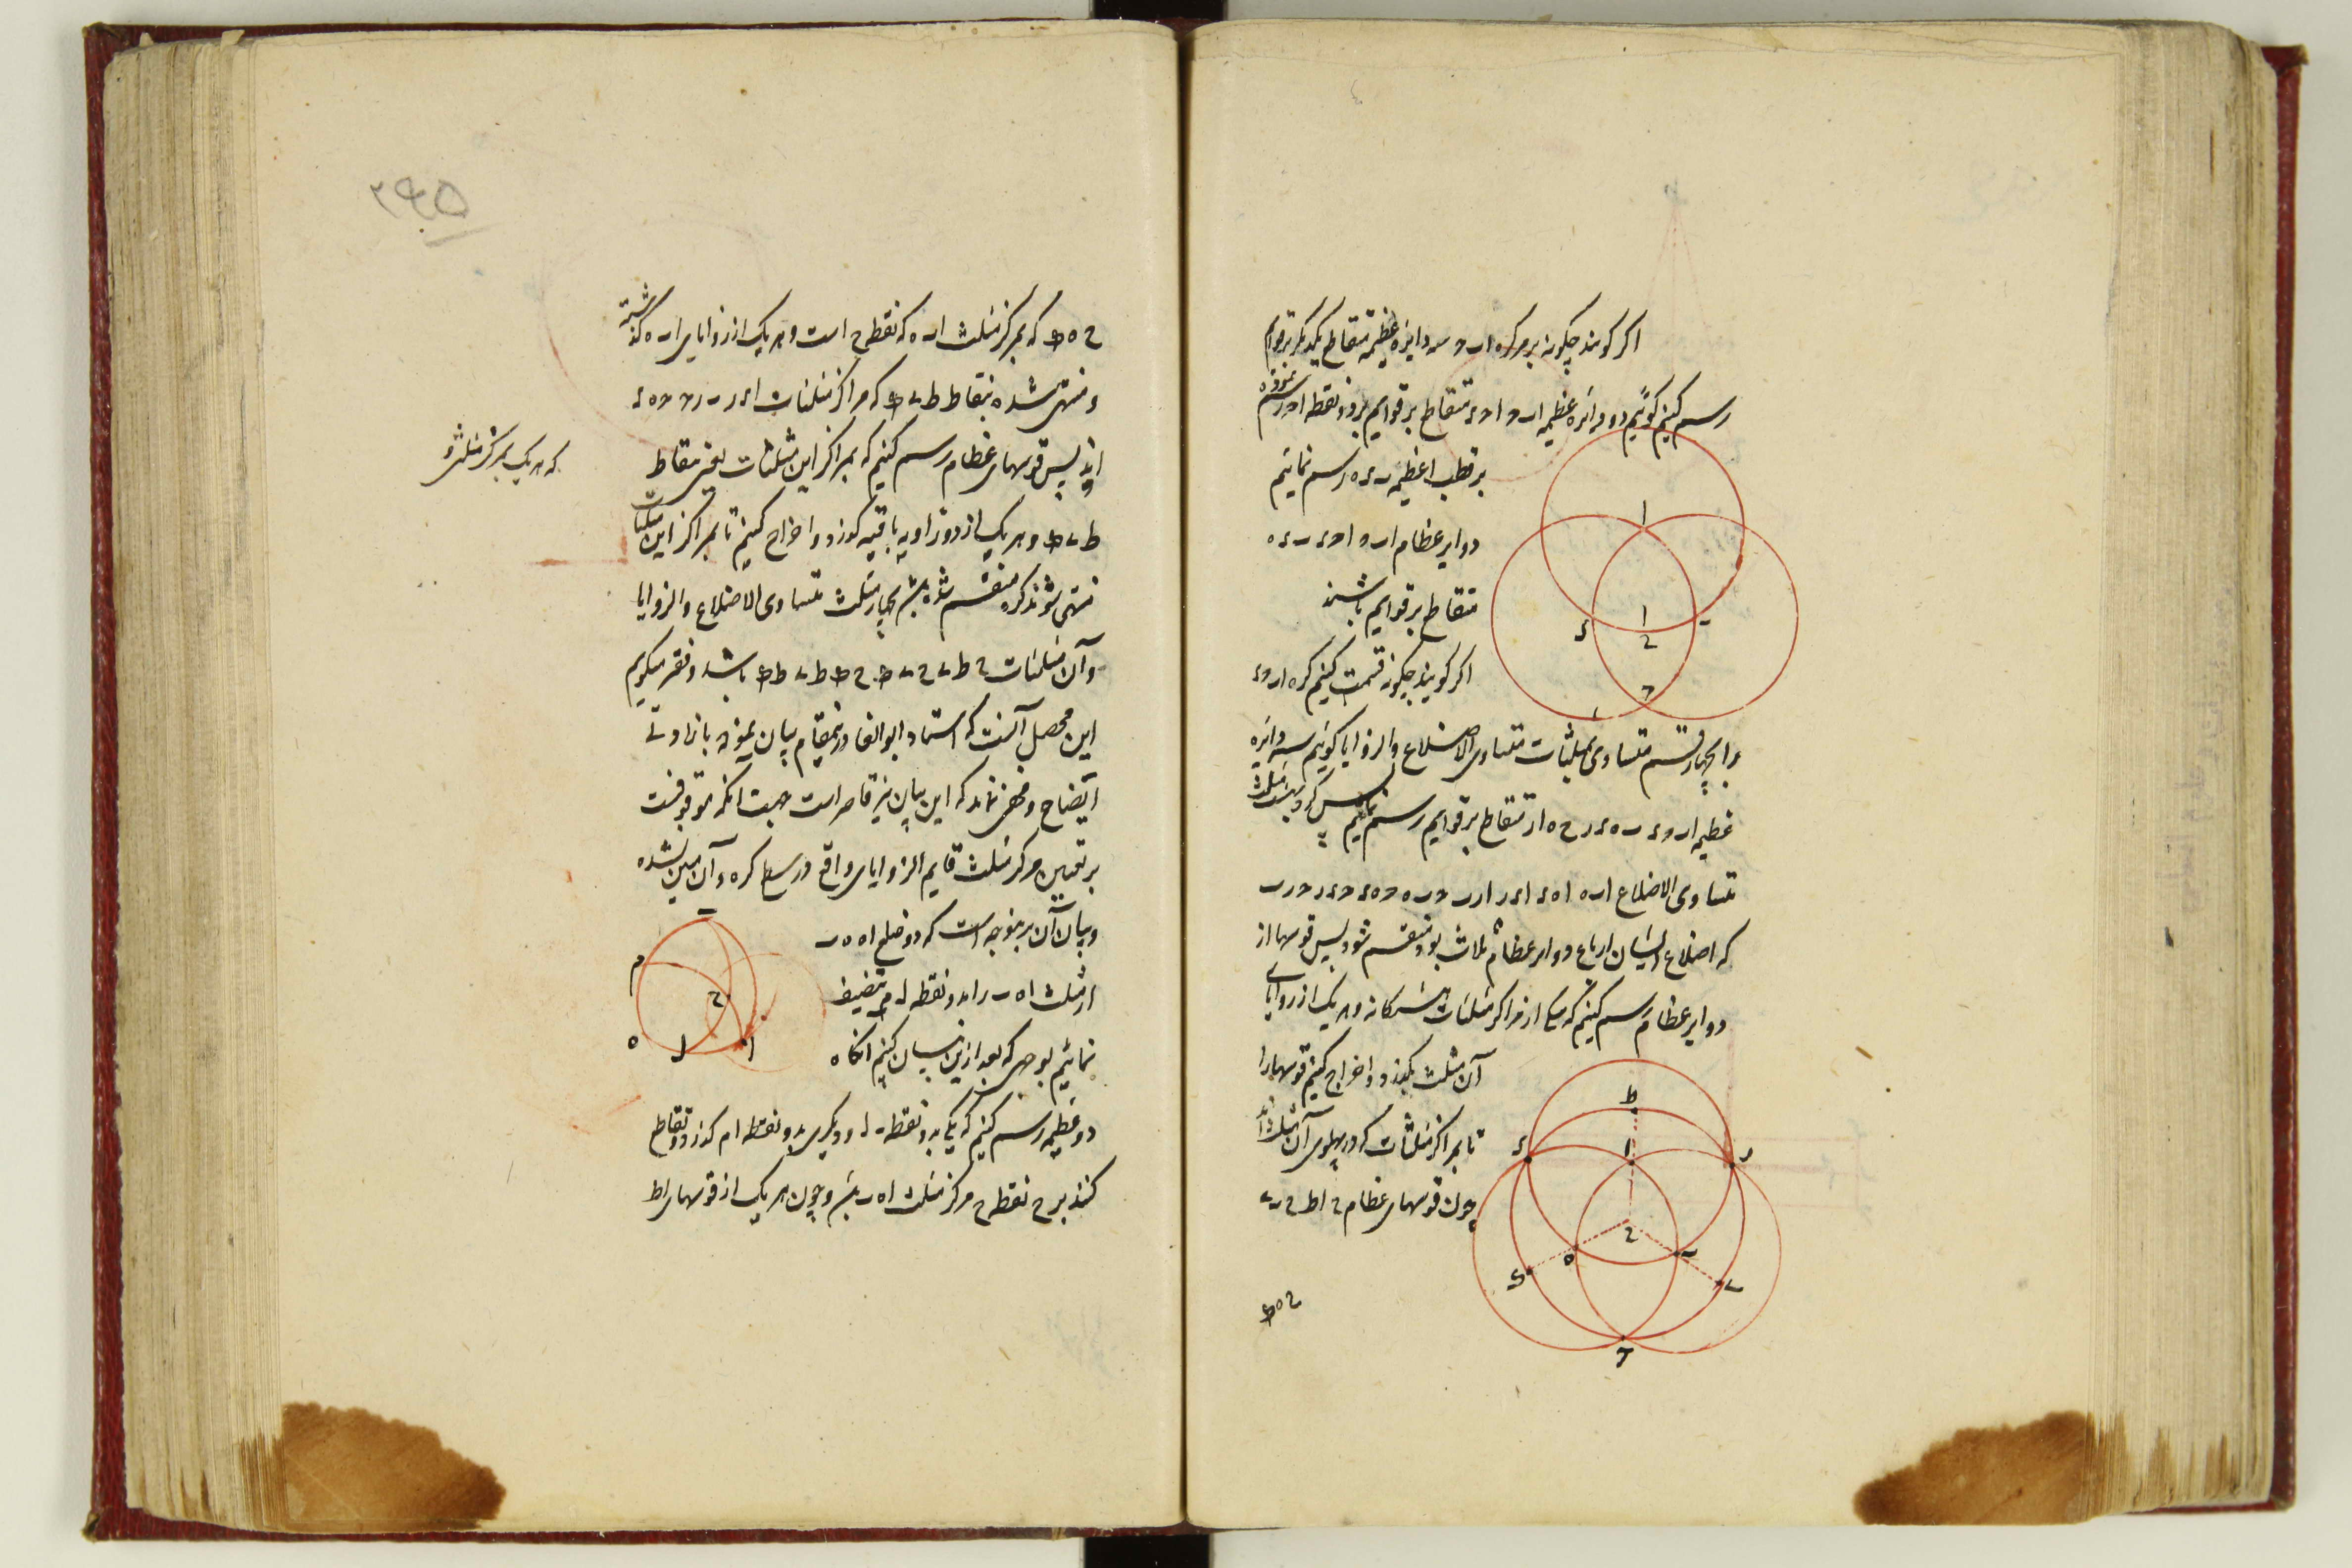 اگر گویند چگونه بر کره ا ب ح سه دایره عظیمه متقاطع یکدیگر بر قوایم
رسم کنیم گوئیم دو دایره عظیمه ا ب ح ا ح ء متقاطع بر قوایم بر دو نقطه ا ح رسم نموده
بر قطب ا عظیمه ب ء ه رسم نمائیم
دوایر عظام ا ب ح ا ح ء ب ء ه
متقاطع بر قوایم باشند
اگر گویند چگونه قسمت کنیم کره ا ب ح ء
را بچهار قسم متساوی بمثلثات متساوی الاضلاع والزوایا گوئیم سه دایره
عظیمه ا ب ح ء ب ه ء ر ح ه ا ر متقاطع بر قوایم رسم کنیم پس کره بهشت مثلث
متساوی الاضلاع ا ب ه ا ه ء ا ء ر ا ر ب ح ب ه ح ه ء ح ء ر ح ر ب
که اضلاع ایشان ارباع دوایر عظام ثلاث بود منقسم شود پس قوسها از
دوایر عظام رسم کنیم که یکی از مراکز مثلثات هشتگانه و هر یک از زوایای
آن مثلث بگذرد و اخراج کنیم قوسها را
تا بمراکز مثلثات که در پهلوی آن مثلث اند
چون قوسهای عظام ح ا ط ح ب ے
ح ه ک
ا
ا
ء
ح
ب
ح
ط
ء
ا
ر
ح
ه
ب
ح
۲۶۵
ح ه ک که بمرکز مثلث ا ب ه که نقطه ح است و هر یک از زوایای ا ب ه گذشته
و منتهی شده بنقاط ط ے ک که مراکز مثلثات ا ء ر ب ر ح ح ه ء
اند پس قوسهای عظام رسم کنیم که بمراکز این مثلثات یعنی نقاط
که هر یک بمرکز مثلثی و
ط ے ک و هر یک از دو زاویه باقیه گذرد و اخراج کنیم تا بمراکز این مثلثات
منتهی شوند کره منقسم شده باشد بچهار مثلث متساوی الاضلاع والزوایا
و آن مثلثات ح ط ے ح ے ک ح ک ط ے ط ک باشد و فقیر میگویم
این محصل آنست که استاد ابوالوفا در اینمقام بیان نموده با زیادتی
ایضاح و مخفی نماند که این بیان نیز قاصر است جهت آنکه موقوفست
بر تعیین مرکز مثلث قایم الزوایای واقع در سطح کره و آن مبین نشده
و بیان آن بر اینوجه است که دو ضلع ا ه ه ب
از مثلث ا ه ب را بدو نقطه ل م تنصیف
نمائیم بوجهی که بعد ازین بیان کنیم آنگاه
دو عظیمه رسم کنیم که یکی بدو نقطه ب ل و دیگری بدو نقطه ا م گذرد و تقاطع
کنند بر ح نقطه ح مرکز مثلث ا ه ب باشد و چون هر یک از قوسهای ا ط
ب
م
ح
ه
ل
ا